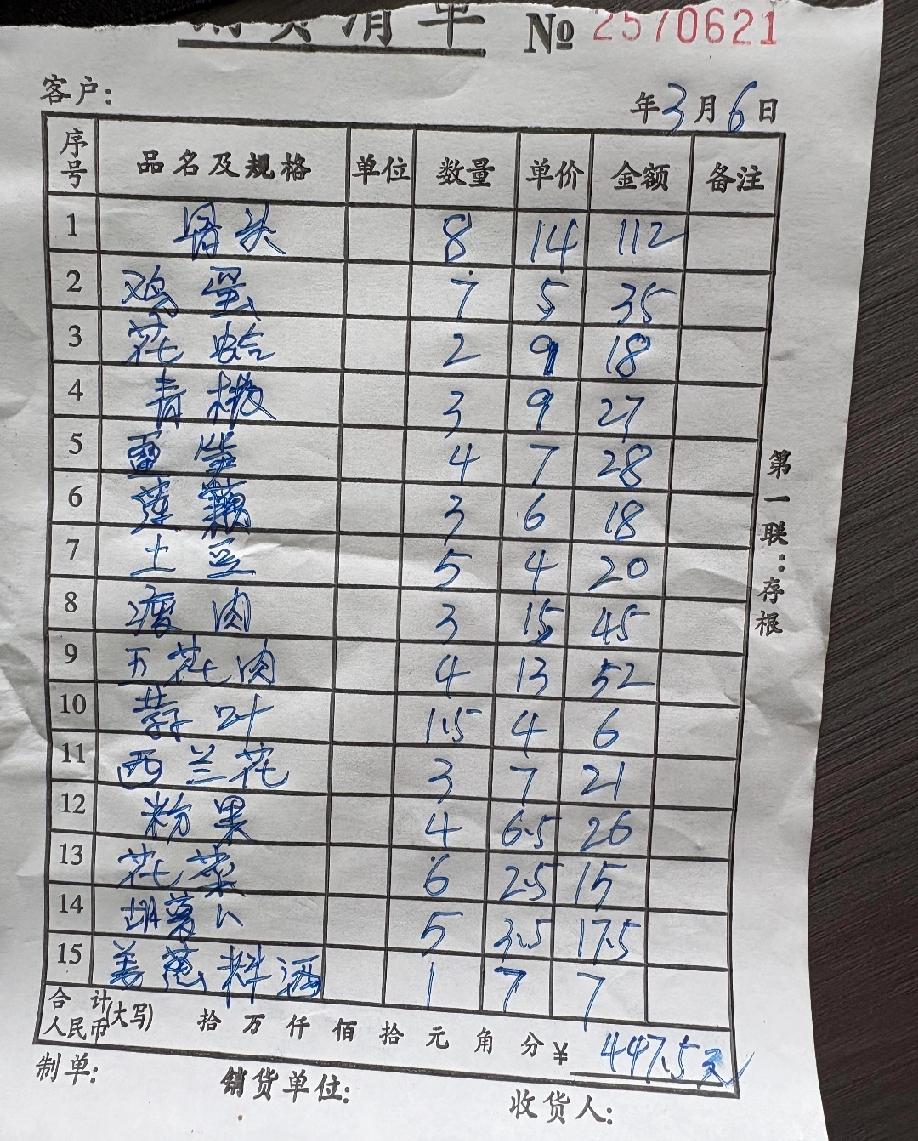 销货清单 № 2570621
客户: 年3月6日
序号 品名及规格 单位 数量 单价 金额 备注
1 骨头 8 14 112
2 鸡蛋 7 5 35
3 花蛤 2 9 18
4 青椒 3 9 27
5 4 7 28
6 莲藕 3 6 18
7 土豆 5 4 20
8 瘦肉 3 15 45
9 五花肉 4 13 52
10 蒜叶 1.5 4 6
11 西兰花 3 7 21
12 粉果 4 6.5 26
13 花菜 6 2.5 15
14 胡萝卜 5 3.5 17.5
15 姜葱料酒 1 7 7
合计人民币(大写) 拾 万 仟 佰 拾 元 角 分 ¥ 447.5元
制单: 销货单位: 收货人:
第一联:存根